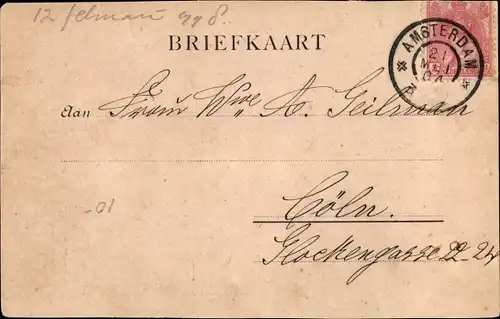 12 februari 998.
BRIEFKAART
AMSTERDAM
21
MEI
Aan Frau Wwe A. Geilman
-01
Cöln.
Glockengasse 22-24